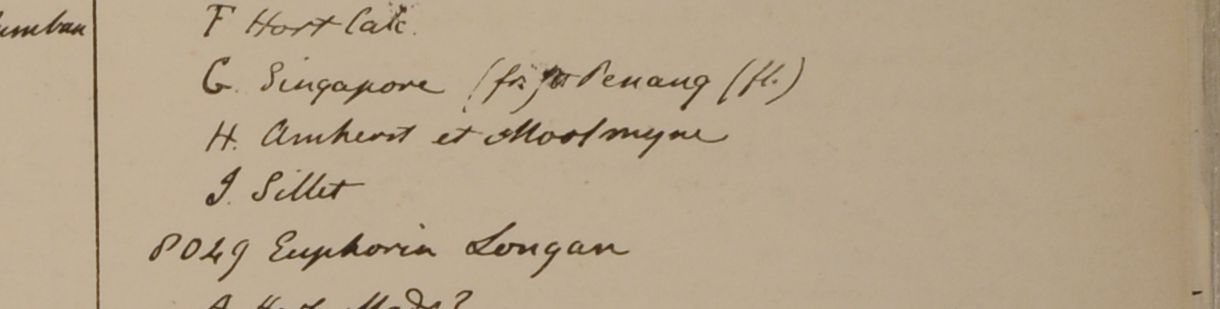 F Hort Calc.
G. Singapore (fr.) et Penang (fl.)
H. Amherst et Moolmeyne
J. Sillet
8049 Euphoria Longan